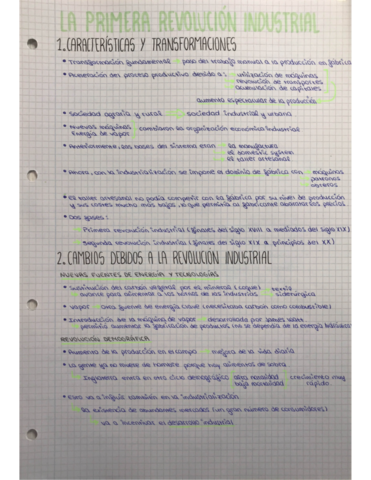 LA PRIMERA REVOLUCIÓN INDUSTRIAL
1. CARACTERÍSTICAS Y TRANSFORMACIONES
• Transformación fundamental paso del trabajo manual a la producción en fábrica
del proceso productivo debido a: utilización de máquinas
revolución de transportes
acumulación de capitales
aumento espectacular de la producción
• Sociedad agraria y rural sociedad industrial y urbana
• Nuevas máquinas cambiaron la organización económica industrial
Energía de vapor
• Anteriormente, las bases del sistema eran la manufactura
el domestic system
el taller artesanal
• Ahora, con la industrialización se impone el dominio de fábrica con máquinas
patronos
obreros
• El taller artesanal no podía competir con la fábrica por su nivel de producción
y sus costes mucho más bajos, lo que permitía al fabricante precios
• Dos fases:
Primera revolución industrial (finales del siglo XVIII a mediados del siglo XIX)
Segunda revolución industrial (finales del siglo XIX a principios del XX)
2. CAMBIOS DEBIDOS A LA REVOLUCIÓN INDUSTRIAL
NUEVAS FUENTES DE ENERGÍA Y TECNOLOGÍAS
• Sustitución del carbón vegetal por el mineral (coque) textil
para alimentar a los hornos de las industrias siderúrgica
• Vapor fuente de energía clave (necesitaba carbón como combustible)
• Introducción de la máquina de vapor desarrollada por James Watt
permitió aumentar la fabricación de productos (no se dependía de la energía hidráulica)
REVOLUCIÓN DEMOGRÁFICA
• Aumento de la producción en el campo mejora de la vida diaria
• La gente ya no muere de hambre porque hay alimentos de sobra
Inglaterra entra en otro ciclo demográfico alta natalidad crecimiento muy
baja mortalidad rápido
• Esto va a influir también en la industrialización
la existencia de abundantes mercados (un gran número de consumidores)
va a incentivar el desarrollo industrial